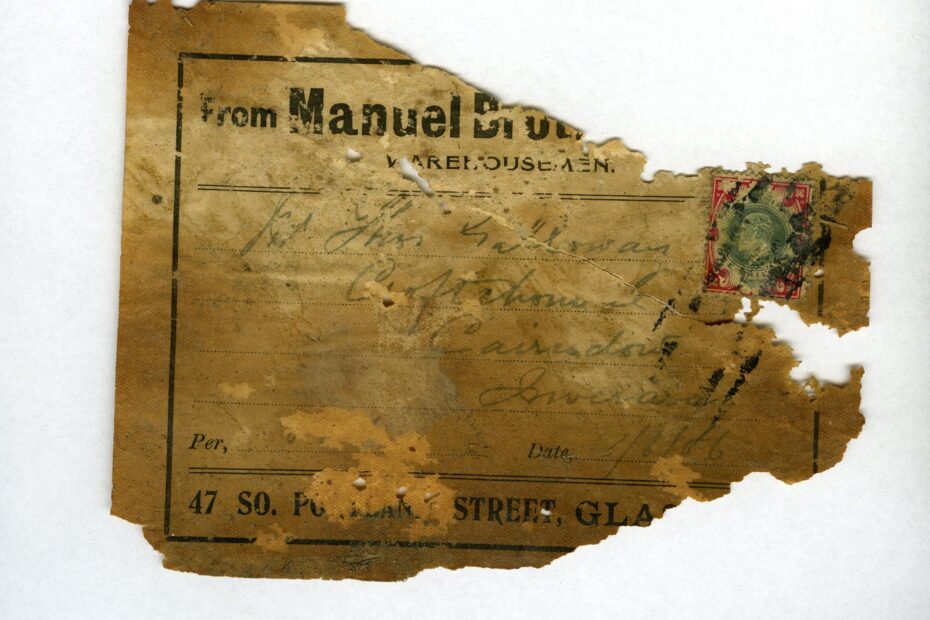 From Manuel Bro
WAREHOUSEMEN.
Thos Galloway
Croftchonnal
Cairndow
Inverara
Per, Date,
47 SO. PORTLAND STREET, GLAS